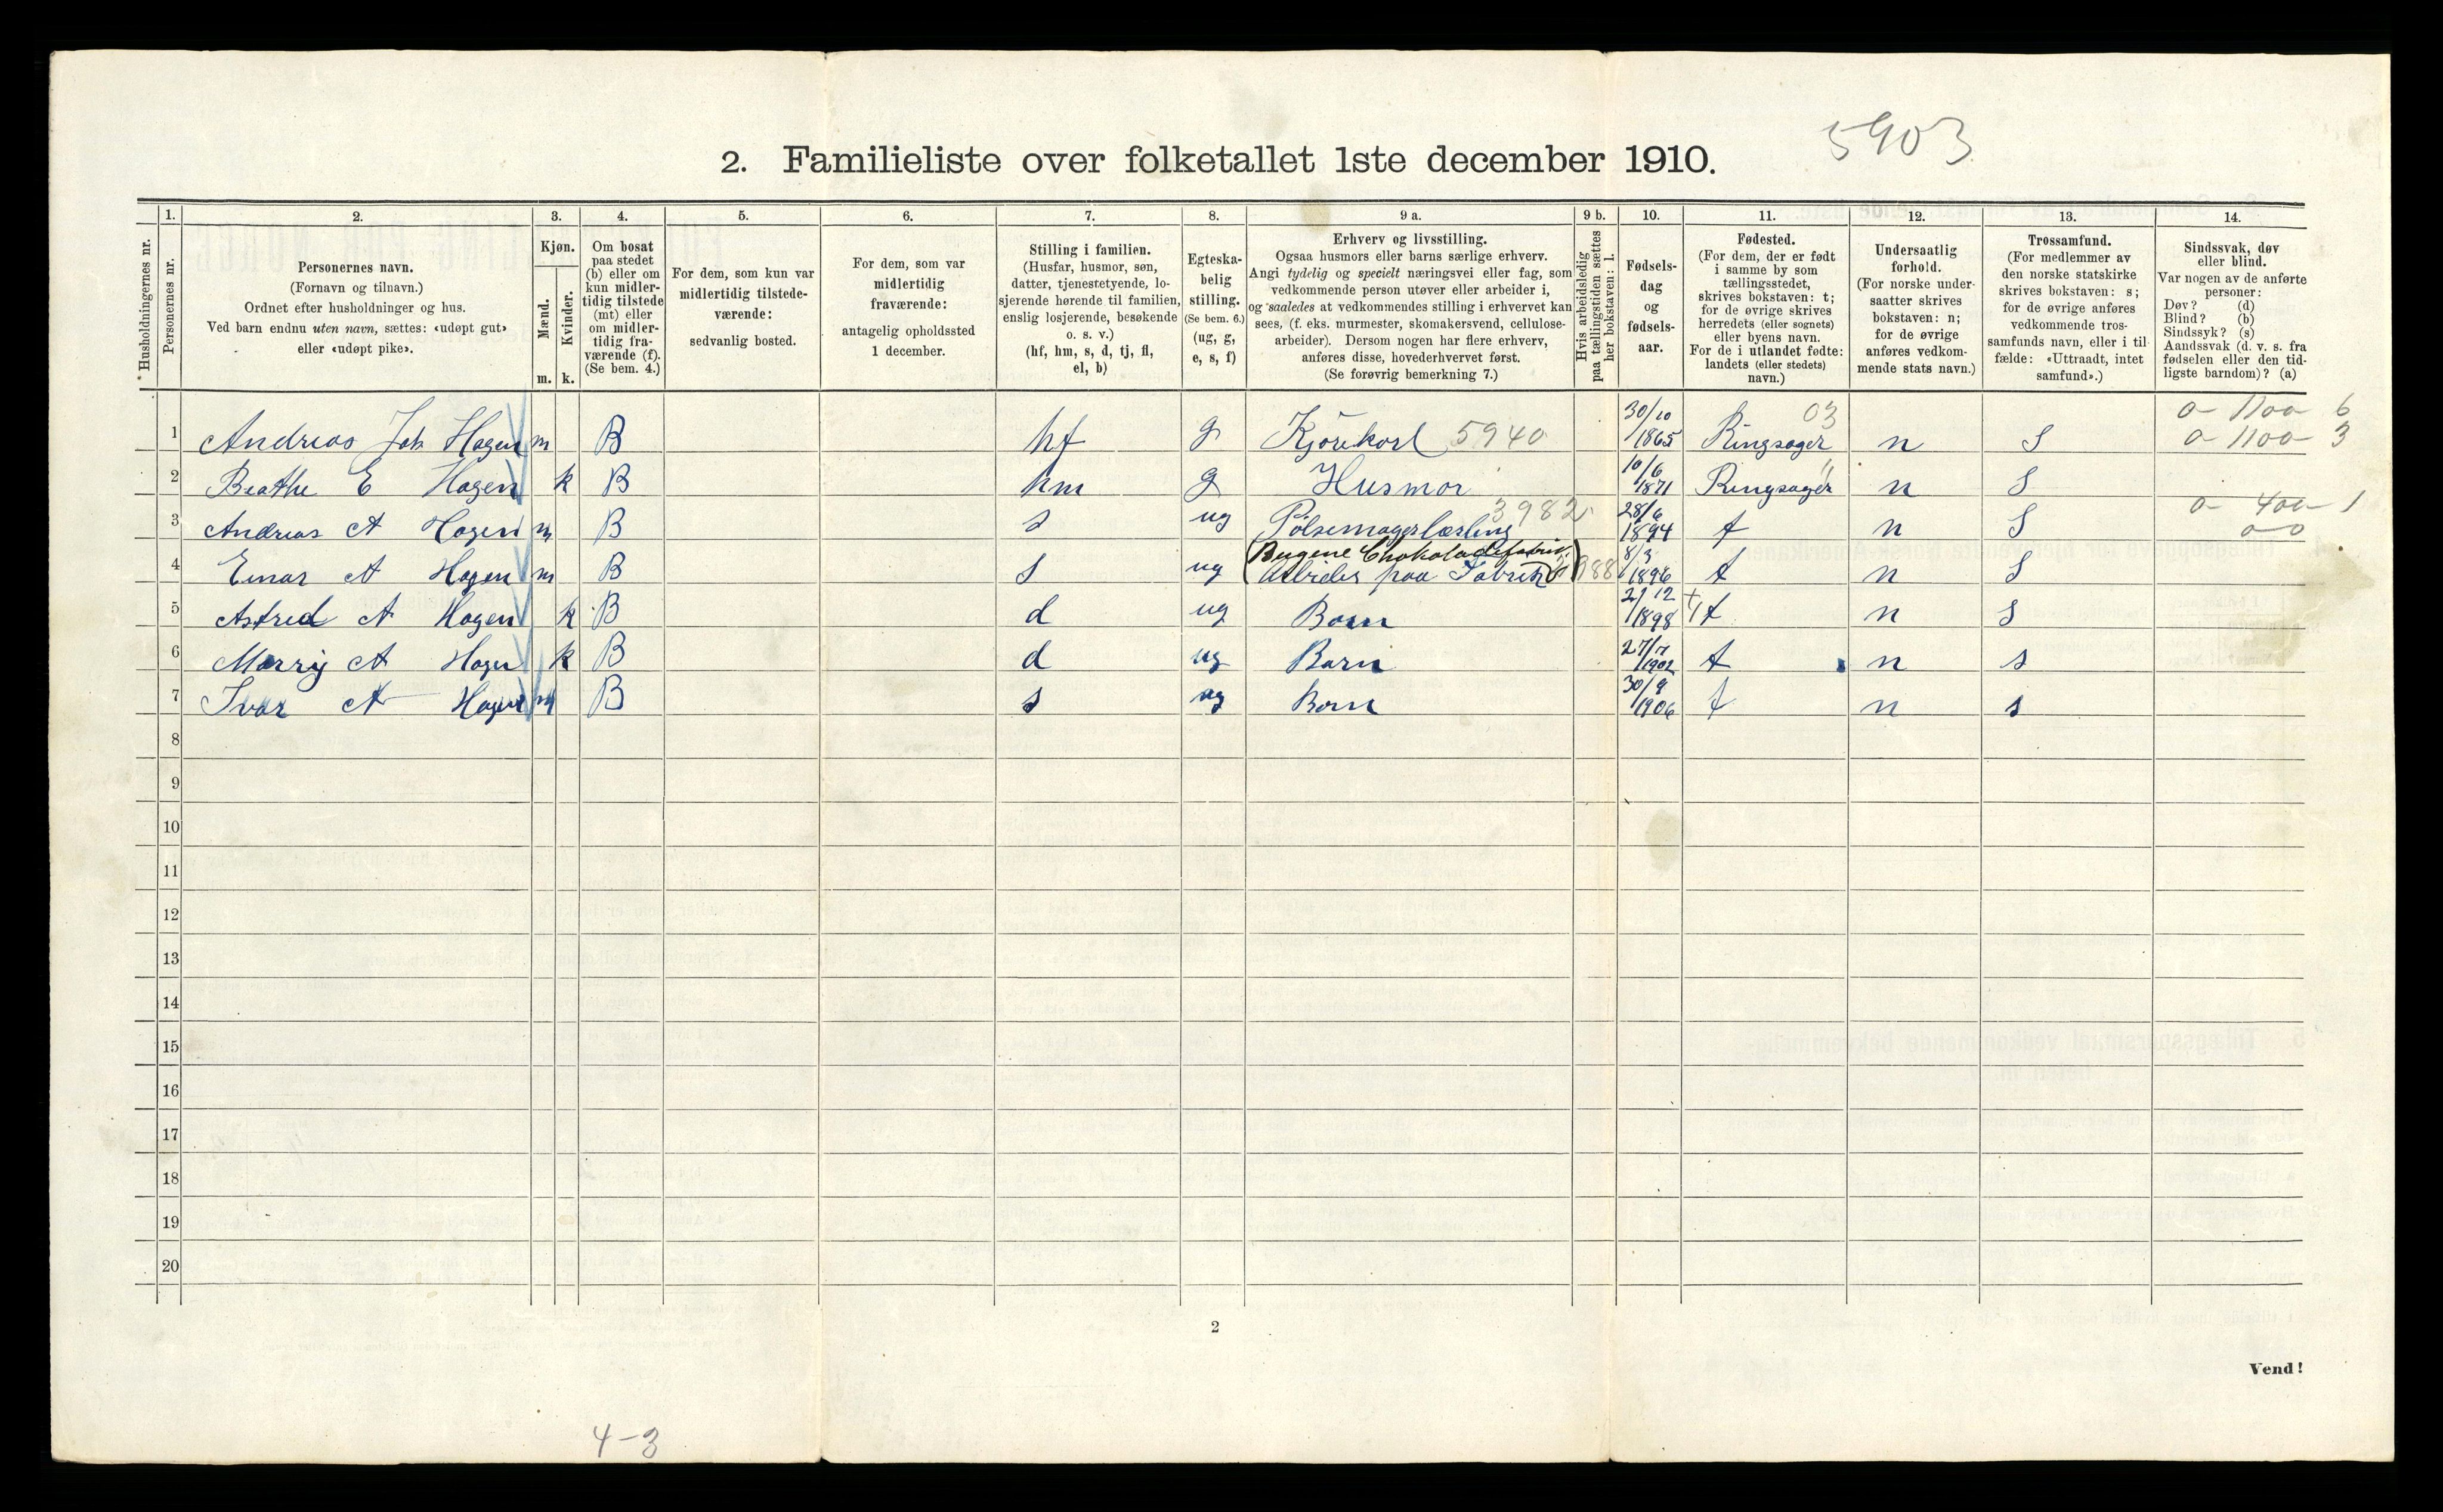 5903
2. Familieliste over folketallet 1ste december 1910.
Husholdningernes nr.
1.
Personernes nr.
2.
Personernes navn.
(Fornavn og tilnavn.)
Ordnet efter husholdninger og hus.
Ved barn endnu uten navn, sættes: «udøpt gut»
eller «udøpt pike».
3.
Kjøn.
Mænd.
Kvinder.
m. k.
4.
Om bosat
paa stedet
(b) eller om
kun midler-
tidig tilstede
(mt) eller
om midler-
tidig fra-
værende (f).
(Se bem. 4.)
5.
For dem, som kun var
midlertidig tilstede-
værende:
sedvanlig bosted.
6.
For dem, som var
midlertidig
fraværende:
antagelig opholdssted
1 december.
7.
Stilling i familien.
(Husfar, husmor, søn,
datter, tjenestetyende, lo-
sjerende hørende til familien,
enslig losjerende, besøkende
o. s. v.)
(hf, hm, s, d, tj, fl,
el, b)
8.
Egteska-
belig
stilling.
(Se bem. 6.)
(ug, g,
e, s, f)
9 a.
Erhverv og livsstilling.
Ogsaa husmors eller barns særlige erhverv.
Angi tydelig og specielt næringsvei eller fag, som
vedkommende person utøver eller arbeider i,
og saaledes at vedkommendes stilling i erhvervet kan
sees, (f. eks. murmester, skomakersvend, cellulose-
arbeider). Dersom nogen har flere erhverv,
anføres disse, hovederhvervet først.
(Se forøvrig bemerkning 7.)
9 b.
Hvis arbeidsledig
paa tællingstiden sættes
her bokstaven: l.
10.
Fødsels-
dag
og
fødsels-
aar.
11.
Fødested.
(For dem, der er født
i samme by som
tællingsstedet,
skrives bokstaven: t;
for de øvrige skrives
herredets (eller sognets)
eller byens navn.
For de i utlandet fødte:
landets (eller stedets)
navn.)
12.
Undersaatlig
forhold.
(For norske under-
saatter skrives
bokstaven: n;
for de øvrige
anføres vedkom-
mende stats navn.)
13.
Trossamfund.
(For medlemmer av
den norske statskirke
skrives bokstaven: s;
for de øvrige anføres
vedkommende tros-
samfunds navn, eller i til-
fælde: «Uttraadt, intet
samfund».)
14.
Sindssvak, døv
eller blind.
Var nogen av de anførte
personer:
Døv? (d)
Blind? (b)
Sindssyk? (s)
Aandssvak (d. v. s. fra
fødselen eller den tid-
ligste barndom)? (a)
03
0- 1100- 6
1 Andreas Joh Hagen m B hf g Kjørekarl 5940 30/10 1865 Ringsager n S 0 1100- 3
2 Beathe E Hagen k B hm g Husmor 10/6 1871 Ringsager n S
3 Andreas A Hagen m B s ug Pølsemagerlærling 3982 28/6 1894 t n S 0- 400- 1
0-0
4 Einar A Hagen m B s ug Arbeider paa Fabrik 8/3 1896 t n S
5 Astrid A Hagen k B d ug Barn 21/12 1898 t n S
6 Marry A Hagen k B d ug Barn 27/7 1902 t n s
7 Ivar A Hagen m B s ug Barn 30/9 1906 t n s
8
9
10
11
12
13
14
15
16
17
18
19
20
2
Vend!
4-3